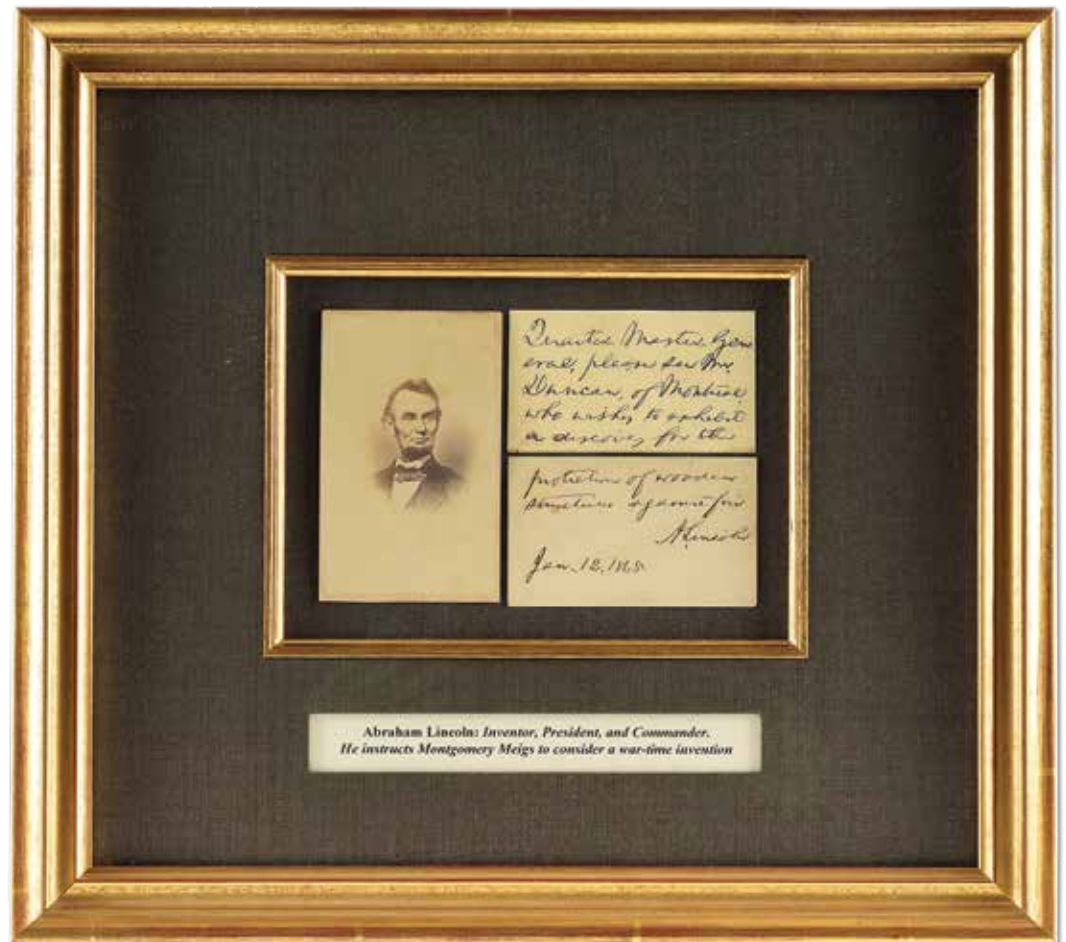 Quarter Master Gen
eral, please see Mr.
Duncan, of Montreal
who wishes to exhibit
a discovery for the
protection of wooden
structures against fire
A. Lincoln
Jan. 12, 1865
Abraham Lincoln: Inventor, President, and Commander.
He instructs Montgomery Meigs to consider a war-time invention